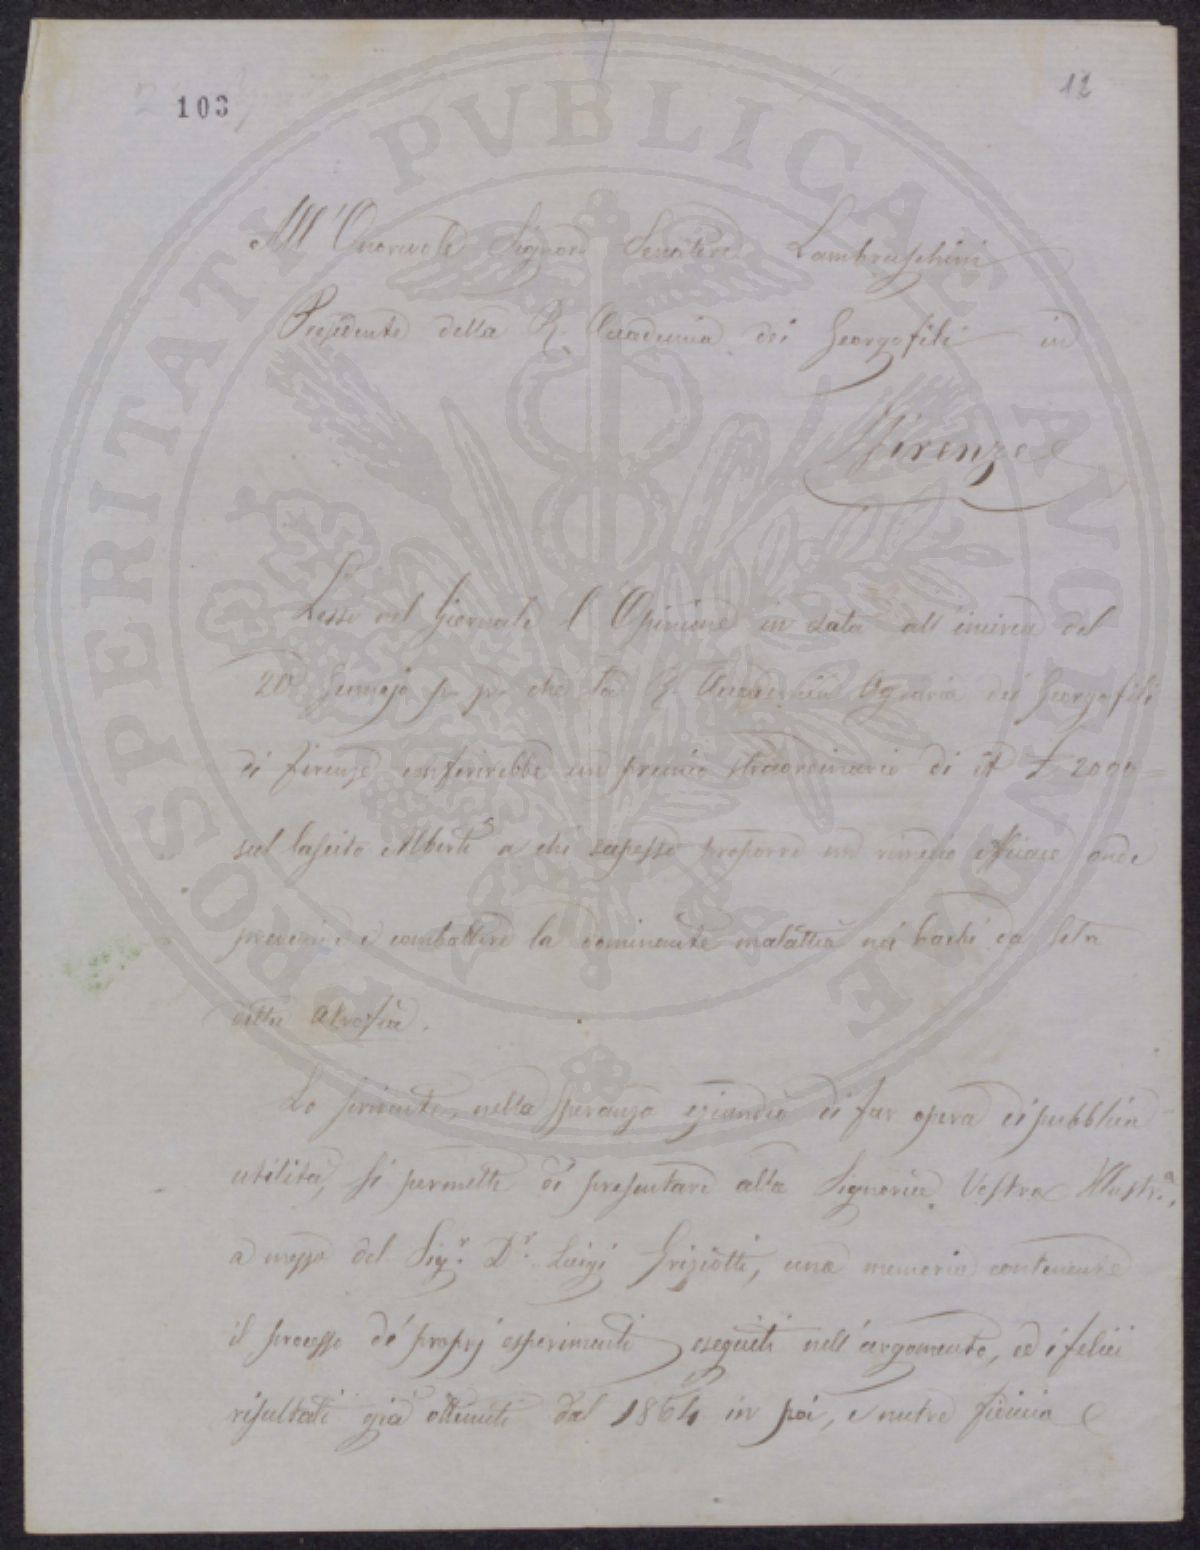 103
12
All'Onorevole Signore Senatore Lambruschini
Presidente della R. Accademia dei Georgofili in
Firenze
Lessi nel Giornale l'Opinione in data all'incirca del
20 Gennajo p. p. che la R. Accademia Agraria dei Georgofili
di Firenze conferirebbe un premio straordinario di it £ 2000=
sul lascito Alberti a chi sapesse proporre un rimedio efficace onde
prevenire e combattere la dominante malattia nei bachi da seta
detta atrofia.
Lo scrivente, nella speranza eziandio di far opera di pubblica
utilità, si permette di presentare alla Signoria Vostra Illustr.a,
a mezzo del Sigr. Dr. Luigi Griziotti, una memoria contenente
il processo de' proprj esperimenti eseguiti nell'argomento, ed i felici
risultati già ottenuti dal 1864 in poi, e nutre fiducia
PROSPERITATI PVBLICAE AVGENDAE